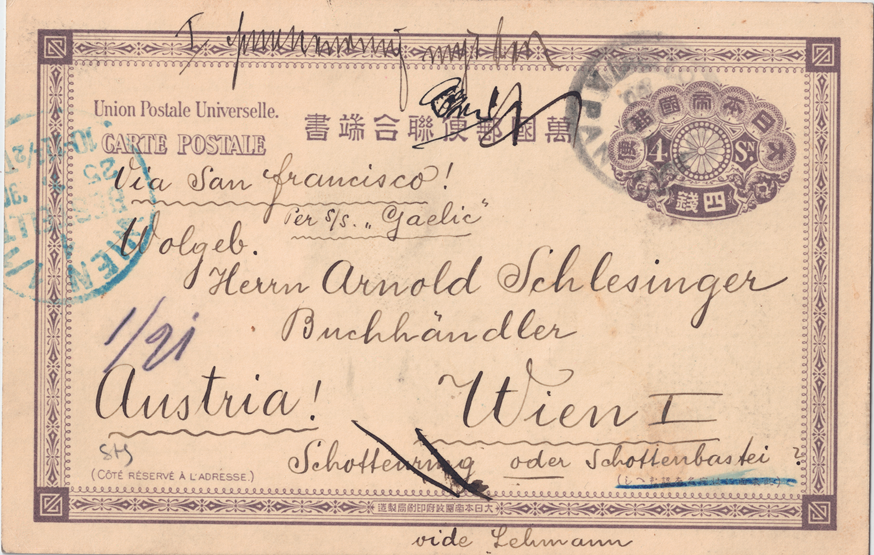 Union Postale Universelle.
書端合聯便郵國萬
CARTE POSTALE
大日本帝國郵便
4
SN.
四錢
JAPAN
Via San Francisco!
Per S/S. „Gaelic“
Wolgeb.
Herrn Arnold Schlesinger
Buchhändler
1/21
Austria! Wien I
Schottenring oder Schottenbastei ?
(CÔTÉ RÉSERVÉ À L'ADRESSE.)
造製局刷印府政國帝本日大
vide Lehmann
WIEN
BESTELLT